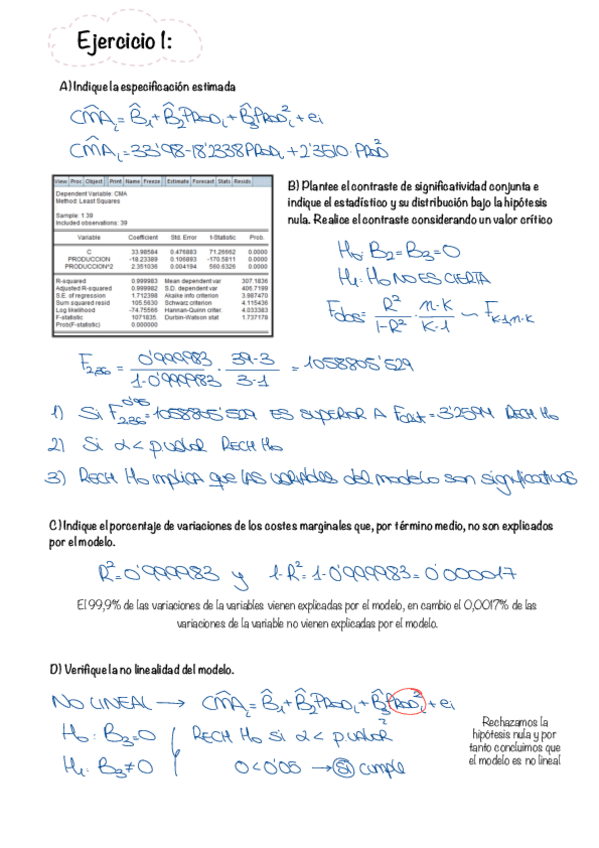 Ejercicio 1:
A) Indique la especificación estimada
CMA_i = B̂1 + B̂2 PROD_i + B̂3 PROD_i² + ei
CMA_i = 33'98 - 18'2338 PROD_i + 2'3510 · PROD²
View Proc Object Print Name Freeze Estimate Forecast Stats Resids
Dependent Variable: CMA
Method: Least Squares
Sample: 1 39
Included observations: 39
Variable Coefficient Std. Error t-Statistic Prob.
C 33.98584 0.476883 71.26662 0.0000
PRODUCCION -18.23389 0.106893 -170.5811 0.0000
PRODUCCION^2 2.351036 0.004194 560.6326 0.0000
R-squared 0.999983 Mean dependent var 307.1836
Adjusted R-squared 0.999982 S.D. dependent var 406.7199
S.E. of regression 1.712398 Akaike info criterion 3.987470
Sum squared resid 105.5630 Schwarz criterion 4.115436
Log likelihood -74.75566 Hannan-Quinn criter. 4.033383
F-statistic 1071835. Durbin-Watson stat 1.737178
Prob(F-statistic) 0.000000
B) Plantee el contraste de significatividad conjunta e
indique el estadístico y su distribución bajo la hipótesis
nula. Realice el contraste considerando un valor crítico
H0: B2 = B3 = 0
H1: H0 NO ES CIERTA
Fdos = R²/1-R² · n-K/K-1 ~ F K-1, n-K
F2,36 = 0'999983/1-0'999983 · 39-3/3-1 = 1058805'529
1) Si F2,36 0'95 = 1058805'529 ES SUPERIOR A Fcrit = 3'2594 RECH H0
2) Si α < p valor RECH H0
3) RECH H0 IMPLICA que LAS VARIABLES del modelo son significativas
C) Indique el porcentaje de variaciones de los costes marginales que, por término medio, no son explicados
por el modelo.
R² = 0'999983 y 1-R² = 1-0'999983 = 0'000017
El 99,9% de las variaciones de la variables vienen explicadas por el modelo, en cambio el 0,0017% de las
variaciones de la variable no vienen explicadas por el modelo.
D) Verifique la no linealidad del modelo.
NO LINEAL → CMA_i = B̂1 + B̂2 PROD_i + B̂3 PROD_i² + ei
H0: B3 = 0 RECH H0 si α < p valor
H1: B3 ≠ 0 0 < 0'05 → SI cumple
Rechazamos la
hipótesis nula y por
tanto concluimos que
el modelo es no lineal